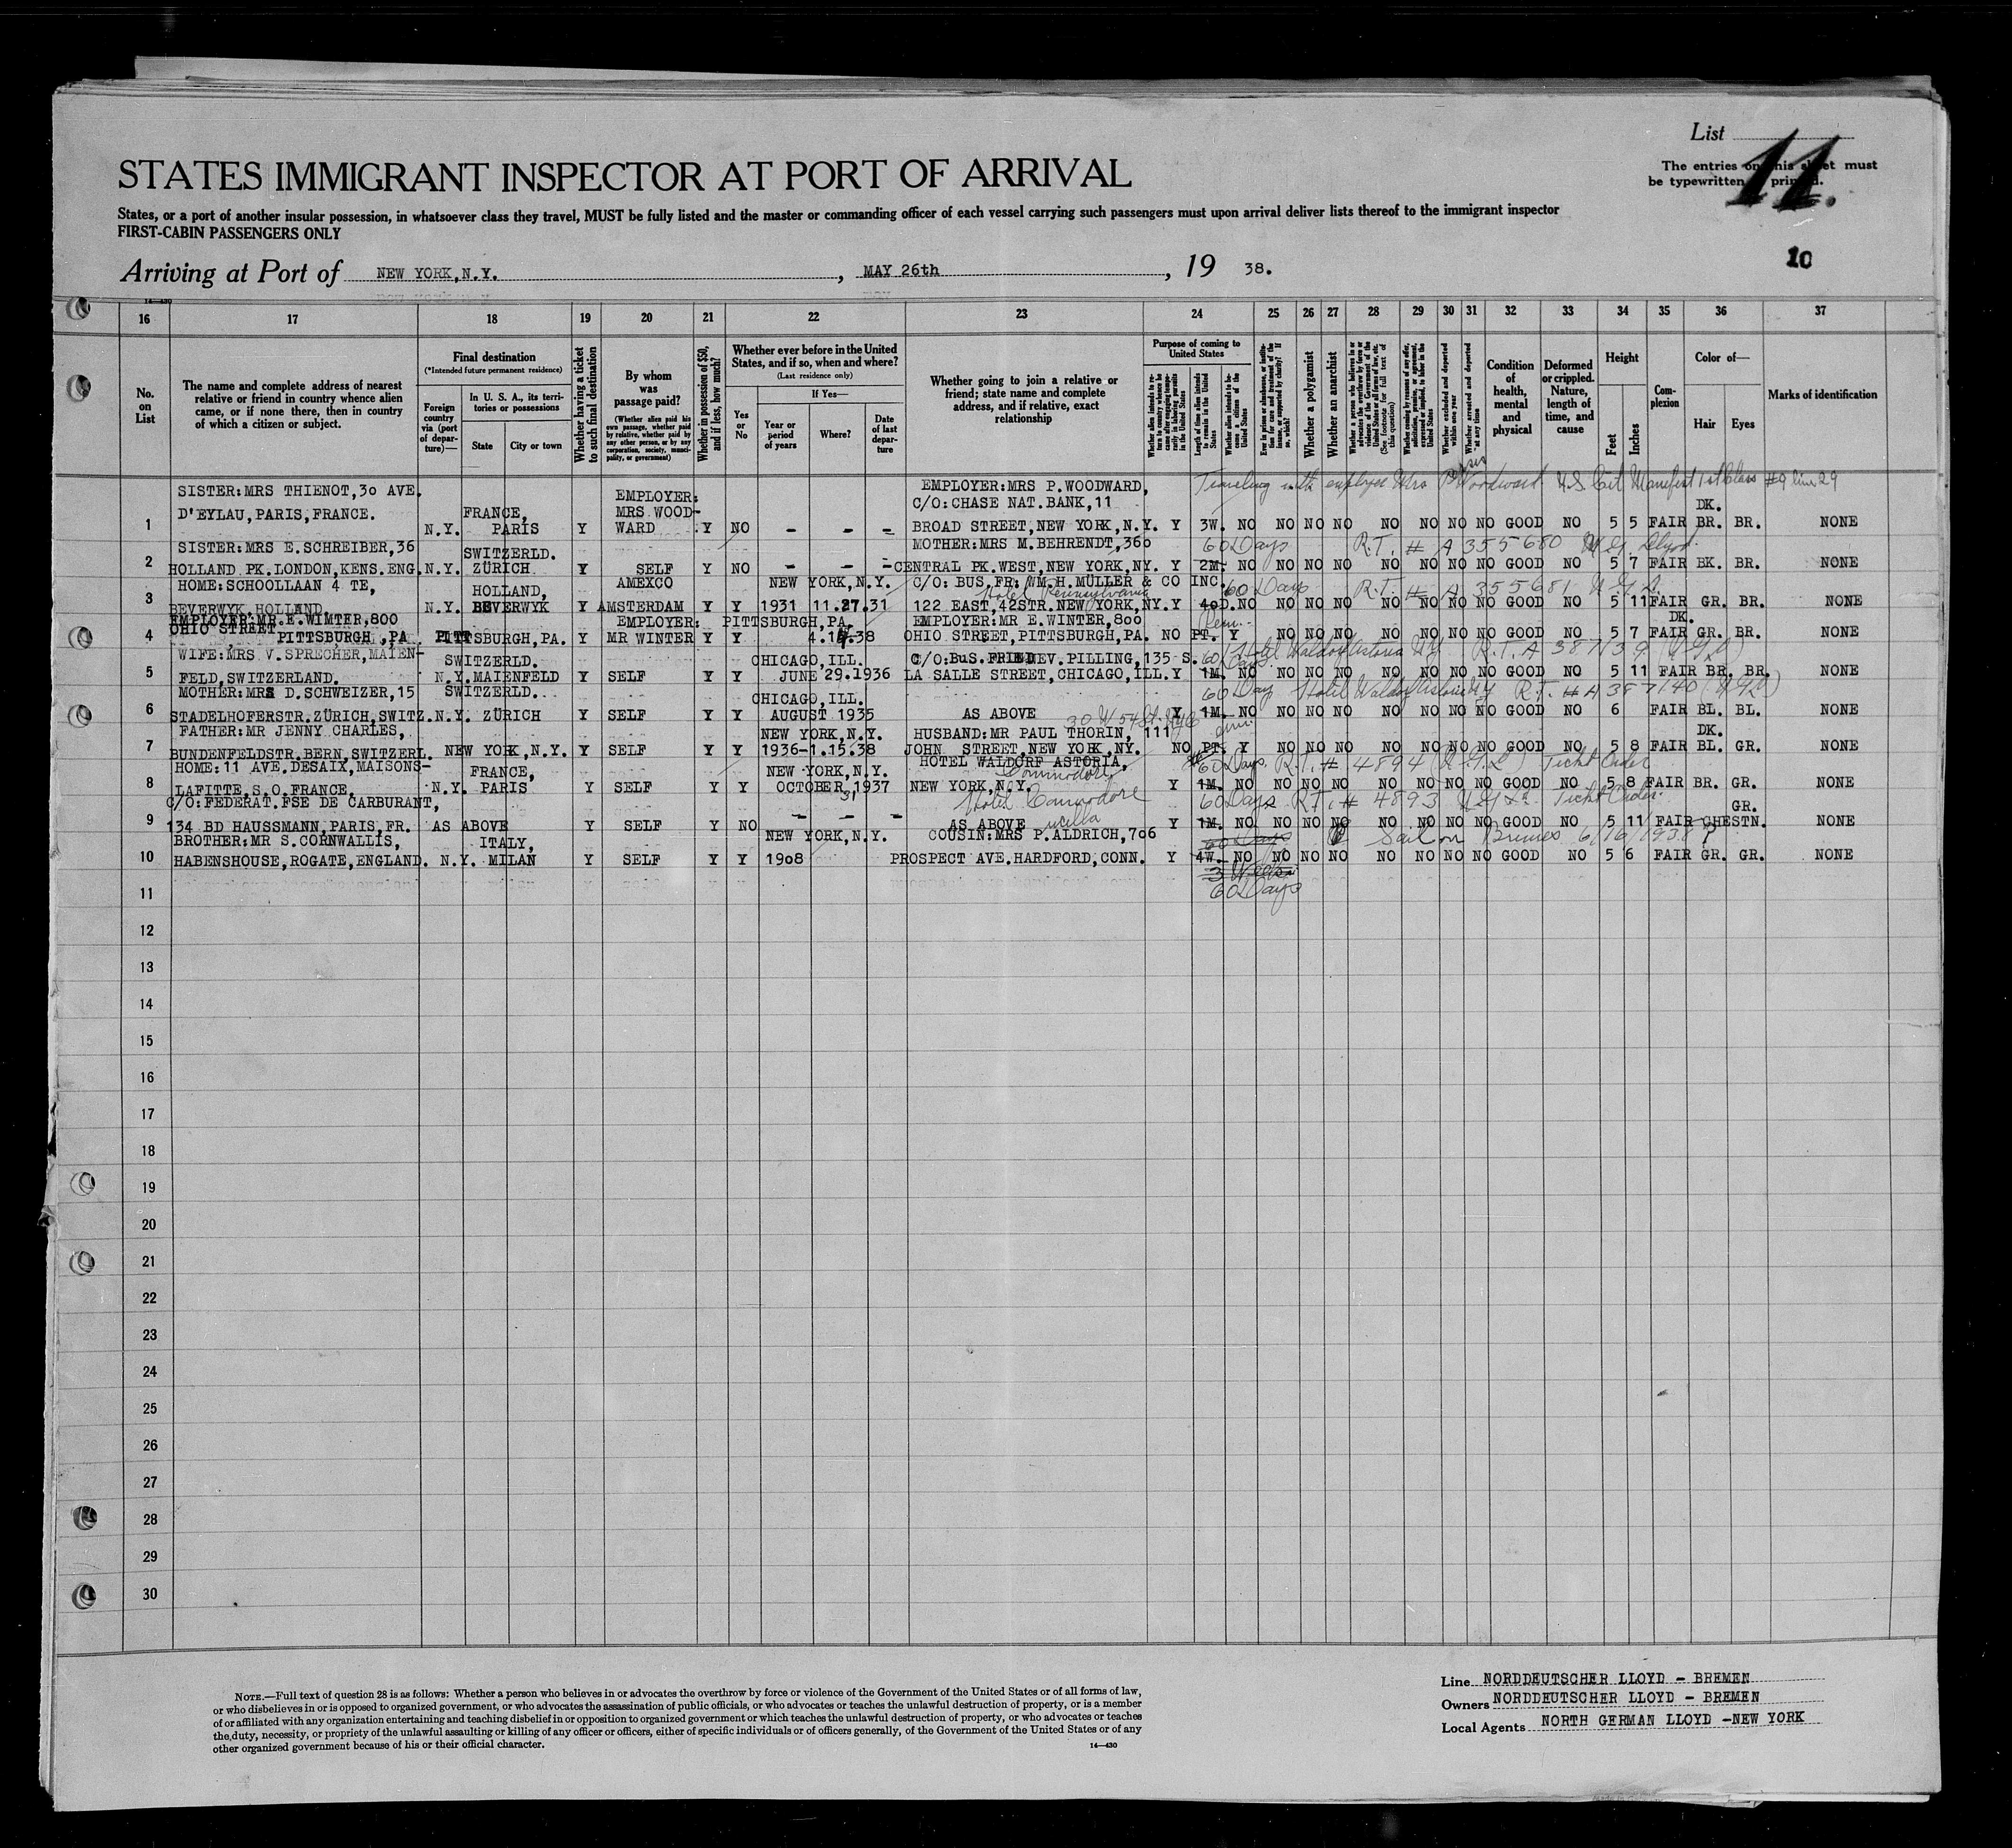 List
11.
The entries on this sheet must
be typewritten or printed.
STATES IMMIGRANT INSPECTOR AT PORT OF ARRIVAL
States, or a port of another insular possession, in whatsoever class they travel, MUST be fully listed and the master or commanding officer of each vessel carrying such passengers must upon arrival deliver lists thereof to the immigrant inspector
FIRST-CABIN PASSENGERS ONLY
10
Arriving at Port of NEW YORK,N.Y. , MAY 26th , 19 38.
14—430
16 17 18 19 20 21 22 23 24 25 26 27 28 29 30 31 32 33 34 35 36 37
No. on List
The name and complete address of nearest relative or friend in country whence alien came, or if none there, then in country of which a citizen or subject.
Final destination
(*Intended future permanent residence)
Foreign country via (port of departure)—
In U. S. A., its territories or possessions
State City or town
Whether having a ticket to such final destination
By whom was passage paid?
(Whether alien paid his own passage, whether paid by relative, whether paid by any other person, or by any corporation, society, municipality, or government)
Whether in possession of $50, and if less, how much?
Whether ever before in the United States, and if so, when and where?
(Last residence only)
Yes or No
If Yes—
Year or period of years
Where?
Date of last departure
Whether going to join a relative or friend; state name and complete address, and if relative, exact relationship
Purpose of coming to United States
Length of time alien intends to remain in the United States
Whether alien intends to become a citizen of the United States
Whether a polygamist
Whether an anarchist
Whether excluded and deported within one year
Whether arrested and deported at any time
Condition of health, mental and physical
Deformed or crippled. Nature, length of time, and cause
Height
Feet Inches
Complexion
Color of—
Hair Eyes
Marks of identification
Traveling with employer Mrs P Woodward U.S. Cit Manifest 1st Class #9 line 29
SISTER:MRS THIENOT,30 AVE. EMPLOYER: EMPLOYER:MRS P.WOODWARD,
D'EYLAU,PARIS,FRANCE. FRANCE, MRS WOOD- C/O:CHASE NAT.BANK,11 DK.
1 N.Y. PARIS Y WARD Y NO - - - BROAD STREET,NEW YORK,N.Y. Y 3W. NO NO NO NO NO NO NO NO GOOD NO 5 5 FAIR BR. BR. NONE
SISTER:MRS E.SCHREIBER,36 SWITZERLD. MOTHER:MRS M.BEHRENDT,360 60 Days R.T. # A 355680
2 HOLLAND PK.LONDON,KENS.ENG. N.Y. ZÜRICH Y SELF Y NO - - - CENTRAL PK.WEST,NEW YORK,NY. Y 2M. NO NO NO NO NO NO NO NO GOOD NO 5 7 FAIR BK. BR. NONE
HOME:SCHOOLLAAN 4 TE, HOLLAND, AMEXCO NEW YORK,N.Y. C/O: BUS.FR: WM.H.MÜLLER & CO INC. 60 Days R.T. # A 355681 N.G.L.
Hotel Pennsylvania
3 BEVERWYK,HOLLAND. N.Y. BEVERWYK Y AMSTERDAM Y Y 1931 11.27.31 122 EAST,42STR.NEW YORK,NY. Y 40D. NO NO NO NO NO NO NO NO GOOD NO 5 11 FAIR GR. BR. NONE
EMPLOYER:MR.E.WINTER,800 EMPLOYER: PITTSBURGH,PA. EMPLOYER:MR E.WINTER,800 Rem. DK.
4 OHIO STREET PITTSBURGH,PA PITTSBURGH,PA. Y MR WINTER Y Y 4.14.38 OHIO STREET,PITTSBURGH,PA. NO PT. Y NO NO NO NO NO NO NO GOOD NO 5 7 FAIR GR. BR. NONE
WIFE:MRS V.SPRECHER,MAIEN- SWITZERLD. CHICAGO,ILL. C/O:BUS.FRIED EV.PILLING,135 S. 60 Days Hotel Waldorf Astoria NY R.T. A 387139 (N.G.L)
5 FELD,SWITZERLAND. N.Y. MAIENFELD Y SELF Y Y JUNE 29.1936 LA SALLE STREET,CHICAGO,ILL. Y 1M. NO NO NO NO NO NO NO NO GOOD NO 5 11 FAIR BR. BR. NONE
MOTHER:MRS D.SCHWEIZER,15 SWITZERLD. CHICAGO,ILL. 60 Day Hotel Waldorf Astoria NY R.T. # A 387140 (N.G.L)
6 STADELHOFERSTR.ZÜRICH,SWITZ. N.Y. ZÜRICH Y SELF Y Y AUGUST 1935 AS ABOVE Y 1M. NO NO NO NO NO NO NO NO GOOD NO 6 FAIR BL. BL. NONE
30 W 54 St. NYC
FATHER:MR JENNY CHARLES, NEW YORK,N.Y. HUSBAND:MR PAUL THORIN, 111 DK.
7 BUNDENFELDSTR.BERN,SWITZERL. NEW YORK,N.Y. Y SELF Y Y 1936-1.15.38 JOHN STREET,NEW YORK,NY. NO PT. Y NO NO NO NO NO NO NO GOOD NO 5 8 FAIR BL. GR. NONE
HOME:11 AVE.DESAIX,MAISONS- FRANCE, NEW YORK,N.Y. HOTEL WALDORF ASTORIA, Commodore 60 Days, R.T. # 4894 (N.G.L) Ticket Order
8 LAFITTE,S.O.FRANCE. N.Y. PARIS Y SELF Y Y OCTOBER 31,1937 NEW YORK,N.Y. Y 1M. NO NO NO NO NO NO NO NO GOOD NO 5 8 FAIR BR. GR. NONE
C/O:FEDERAT.FSE DE CARBURANT, Hotel Commodore 60 Days R.T. # 4893 Ticket Order. GR.
9 134 BD HAUSSMANN,PARIS,FR. AS ABOVE Y SELF Y NO - - - AS ABOVE Y 1M. NO NO NO NO NO NO NO NO GOOD NO 5 11 FAIR CHESTN. NONE
BROTHER:MR S.CORNWALLIS, ITALY, NEW YORK,N.Y. COUSIN:MRS P.ALDRICH,706 60 Days Sail on Bremen 6/16/1938
10 HABENSHOUSE,ROGATE,ENGLAND. N.Y. MILAN Y SELF Y Y 1908 PROSPECT AVE.HARDFORD,CONN. Y 4W. NO NO NO NO NO NO NO NO GOOD NO 5 6 FAIR GR. GR. NONE
3 Weeks
60 Days
11
12
13
14
15
16
17
18
19
20
21
22
23
24
25
26
27
28
29
30
NOTE.—Full text of question 28 is as follows: Whether a person who believes in or advocates the overthrow by force or violence of the Government of the United States or of all forms of law,
or who disbelieves in or is opposed to organized government, or who advocates the assassination of public officials, or who advocates or teaches the unlawful destruction of property, or is a member
of or affiliated with any organization entertaining and teaching disbelief in or opposition to organized government or which teaches the unlawful destruction of property, or who advocates or teaches
the duty, necessity, or propriety of the unlawful assaulting or killing of any officer or officers, either of specific individuals or of officers generally, of the Government of the United States or of any
other organized government because of his or their official character.
14—430
Line NORDDEUTSCHER LLOYD - BREMEN
Owners NORDDEUTSCHER LLOYD - BREMEN
Local Agents NORTH GERMAN LLOYD -NEW YORK